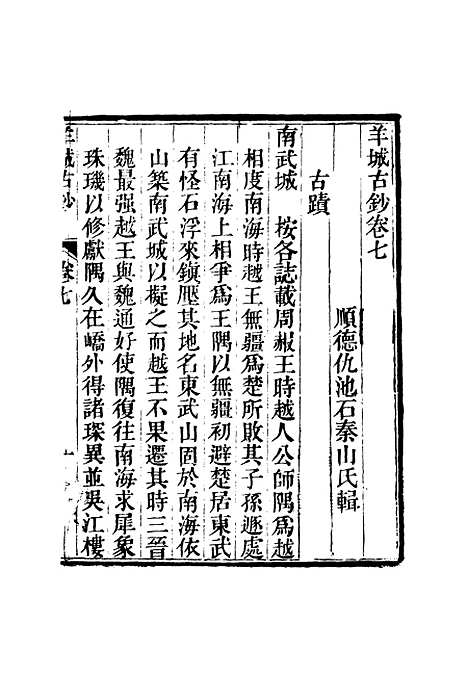 羊城古鈔卷七
順德仇池石秦山氏輯
古蹟
南武城 按各誌載周赧王時越人公師隅爲越
相度南海時越王無疆爲楚所敗其子孫遯處
江南海上相爭爲王隅以無疆初避楚居東武
有怪石浮來鎭壓其地名東武山固於南海依
山築南武城以擬之而越王不果遷其時三晉
魏最强越王與魏通好使隅復往南海求犀象
珠璣以修獻隅久在嶠外得諸琛異並吳江樓
羊城古鈔 卷七 一